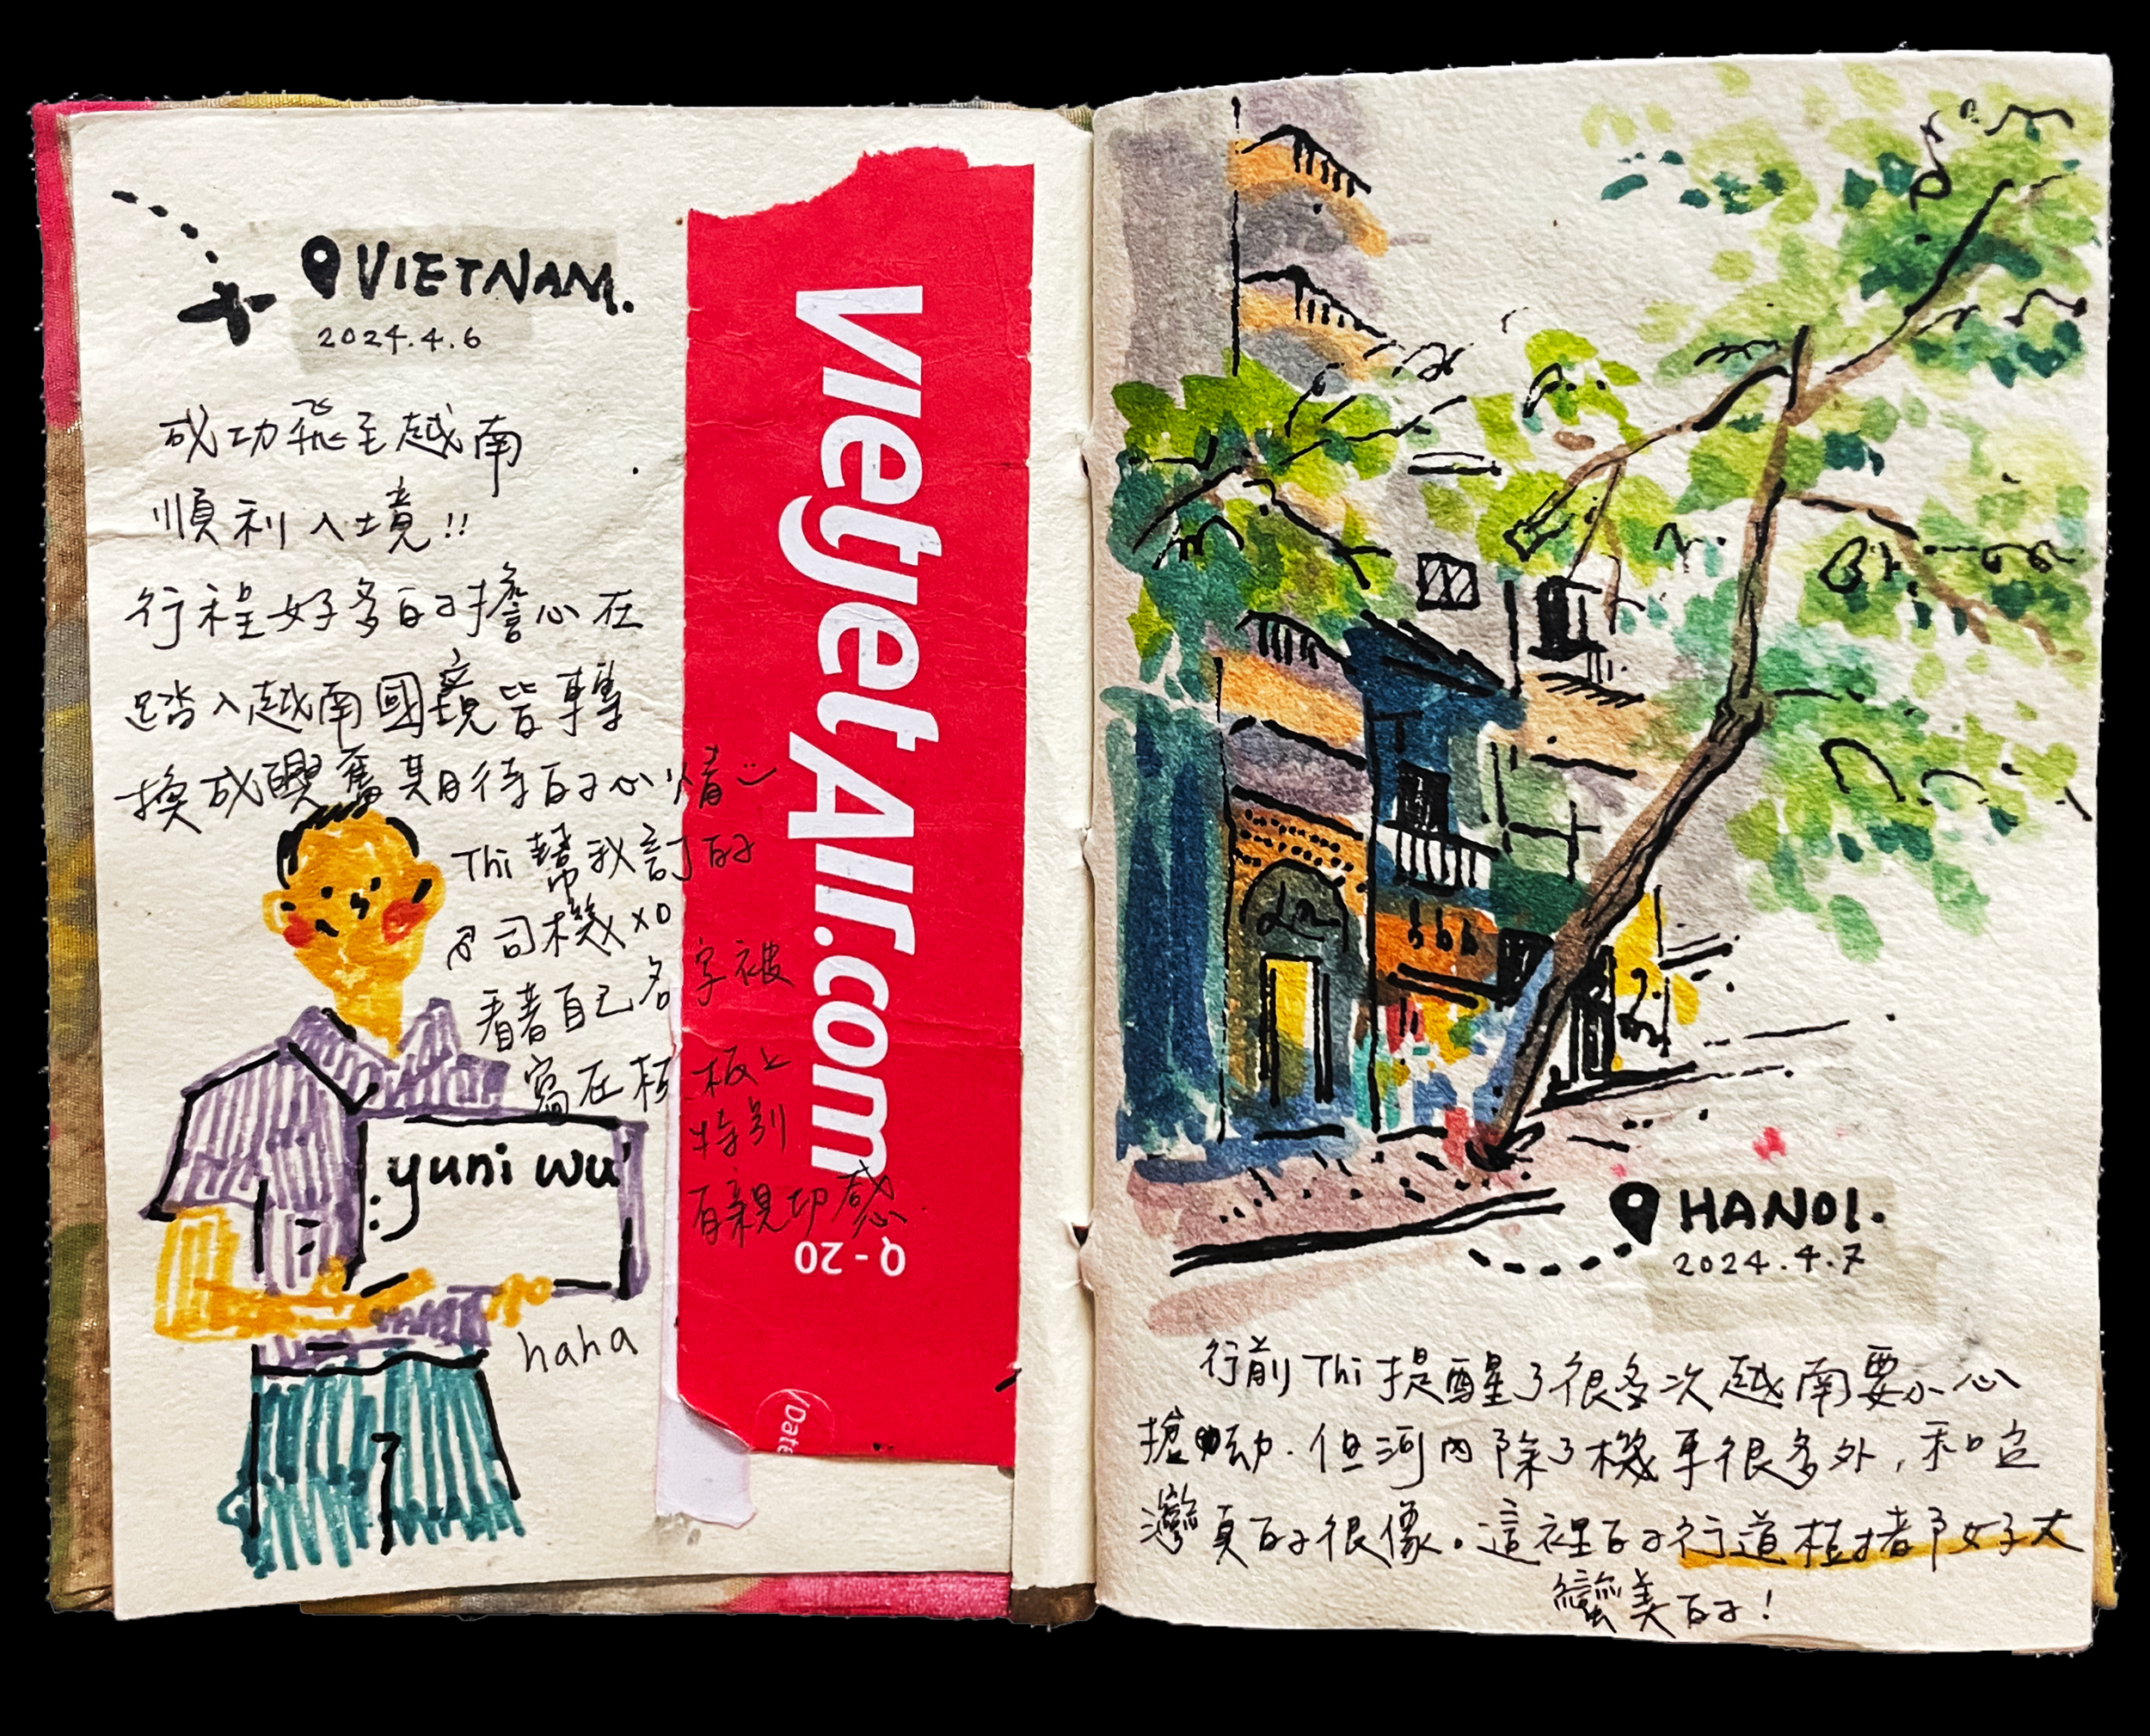 VIETNAM.
2024.4.6
成功飛至越南
順利入境!!
行程好多的擔心在
踏入越南國境皆轉
換成興奮期待的心情
Thi 幫我訂的
司機 xD
看著自己名字被
寫在板板上
特別
有親切感
yuni wu
haha
Vietjet Air.com
Q - 20
/Date
HANOI.
2024.4.7
行前 Thi 提醒了很多次越南要小心
搶劫. 但河內除了機車很多外, 和台
灣真的很像。這裡的行道樹都好大
蠻美的!